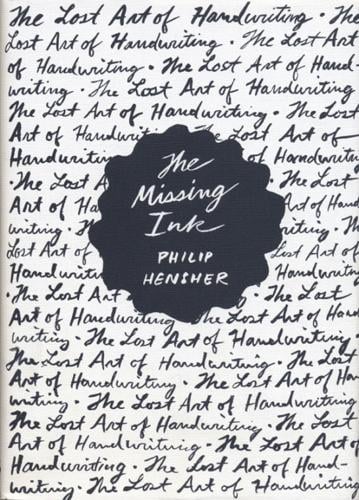 The Lost Art of Handwriting · The
Lost Art of Handwriting · The Lost Art
of Handwriting · The Lost Art of Hand-
writing · The Lost Art of Handwriting
The Lost Art of Handwriting · The Lost
Art of Handwriti The Lost Art of
Handwritin of Handwriting
· The Lost A The Lost
Art of Ha Art of Hand
writing · riting · The
Lost Art o Lost Art of
Handwritin Handwriting
· The Lost Art The Lost
Art of Handwriting The Lost Art of Hand
writing · The Lost Art of Handwriting
The Lost Art of Handwriting · The Lost
Art of Handwriting · The Lost Art of Han
writing · The Lost Art of Handwriting
The Lost Art of Handwriting · The Lost
Art of Handwriting · The Lost Art of
Handwriting · The Lost Art of Hand-
writing · The Lost Art of Handwriting
The
Missing
Ink
PHILIP
HENSHER